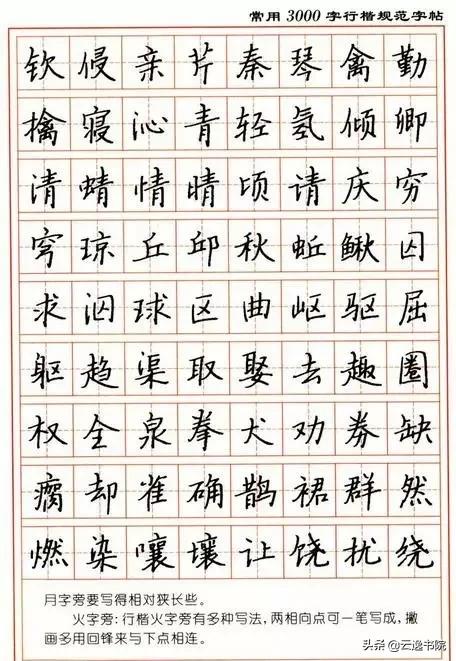 常用3000字行楷规范字帖
钦侵亲芹秦琴禽勤
擒寝沁青轻氢倾卿
清蜻情晴顷请庆穷
穹琼丘邱秋蚯鳅囚
求泅球区曲岖驱屈
躯趋渠取娶去趣圈
权全泉拳犬劝券缺
瘸却雀确鹊裙群然
燃染嚷壤让饶扰绕
月字旁要写得相对狭长些。
火字旁：行楷火字旁有多种写法，两相向点可一笔写成，撇
画多用回锋来与下点相连。
头条@云逸书院